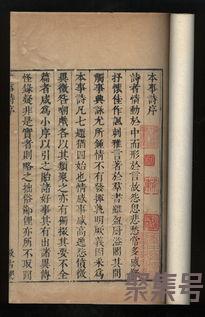 本事詩序
詩者情動於中而形於言故怨思悲愁常多感慨
抒懷佳作諷刺雅言著於羣書雖盈廚溢閣其間
觸事興詠尤所鍾情不有發揮孰明厥義因采為
本事詩凡七題猶四始也情感事感高逸怨憤徵
異徵咎嘲戲各以其類聚之亦有獨掇其要不全
篇者咸為小序以引之貽諸好事其有出諸異傳
怪錄疑非是實者則略之拙俗鄙俚亦所不取聞
聚集号